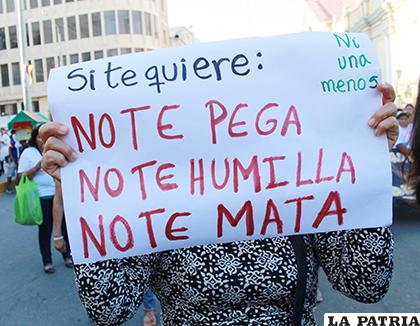 Si te quiere:
Ni una menos
NO TE PEGA
NO TE HUMILLA
NO TE MATA
LA PATRIA